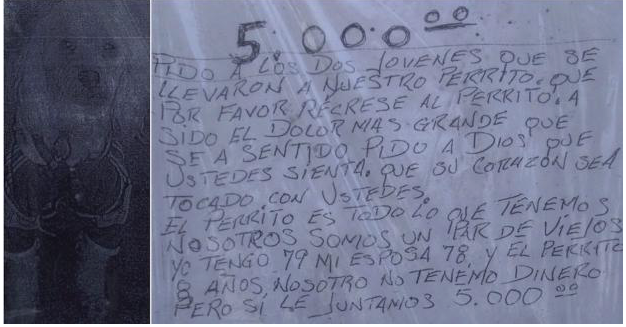 5.000.00
PIDO A LOS DOS JOVENES QUE SE
LLEVARON A NUESTRO PERRITO. QUE
POR FAVOR RECRESE AL PERRITO. A
SIDO EL DOLOR MAS GRANDE QUE
SE A SENTIDO PIDO A DIOS QUE
USTEDES SIENTA. QUE SU CORAZON SEA
TOCADO CON USTEDES.
EL PERRITO ES TODO LO QUE TENEMOS
NOSOTROS SOMOS UN PAR DE VIEJOS
YO TENGO 79 MI ESPOSA 78. Y EL PERRITO
8 AÑOS, NOSOTRO NO TENEMO DINERO
PERO SI LE JUNTAMOS 5.000 00